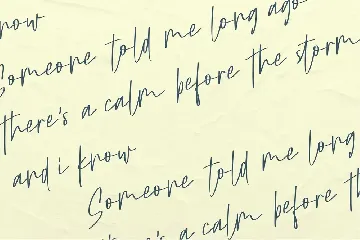 now
Someone told me long ago
there's a calm before the storm
and i know
Someone told me long
there's a calm before th